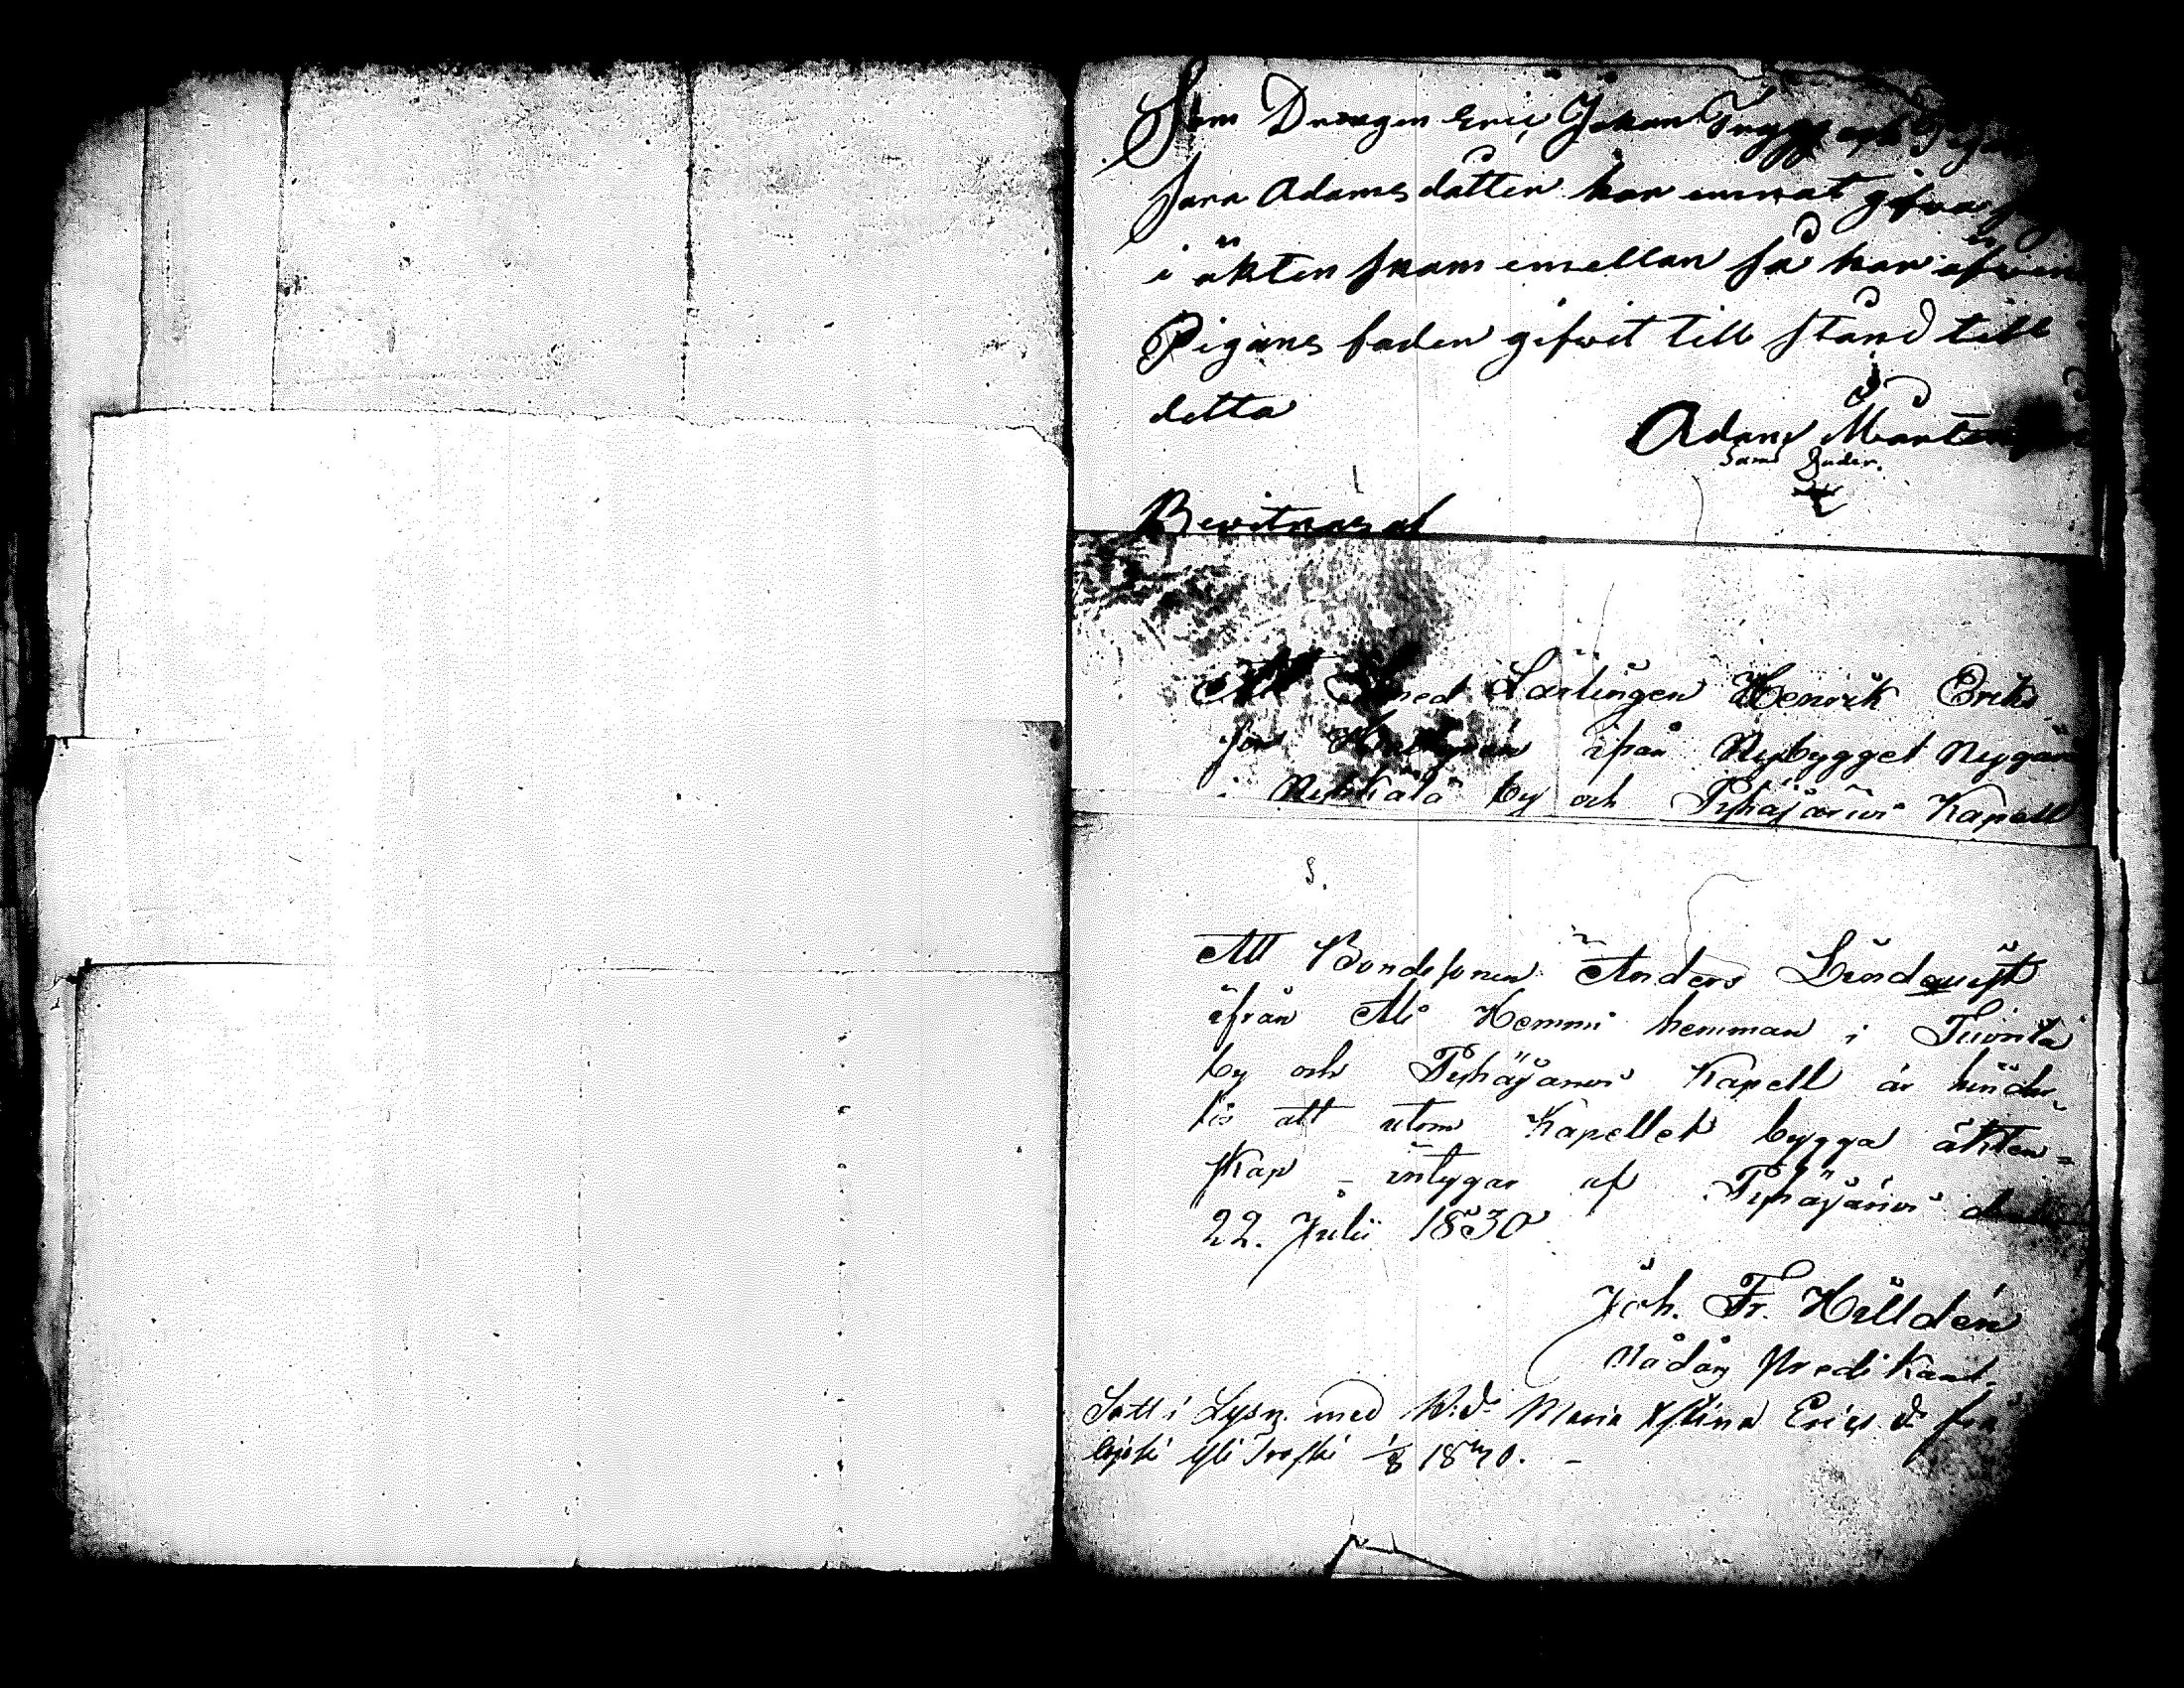 Som Drængen Eric Johan Trygg och Pigan
Sara Adamsdatter har ernnat gifva
i äktenskam emellan så har äfven
Pigans fader gifwit till stånd till
detta
Adam Mårtens
Bewitnas af
Att Smed Lärlingen Henrik Eriks
son ifrån Nybygget Nygår
i by och Pyhäjärvi Kapell
S.
Att Bondesonen Anders Lindqvist
ifrån Ali Hemmi hemman i
by och Pyhäjärvi Kapell är hinder
lös att utom Kapellet bygga äkten=
skap – intygar af Pyhäjärvi
22. Julii 1830
Joh. Fr. Hilldén
Nådårs Predikant.
Satt i Lysn. med B:d. Maria Xstina Erics d. frå
1/8 1830. –